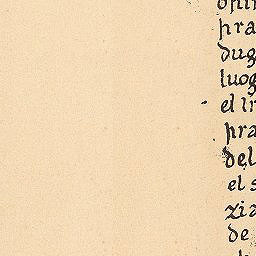 pra
dug
luog
el ir
pra
del
el s
zia
de